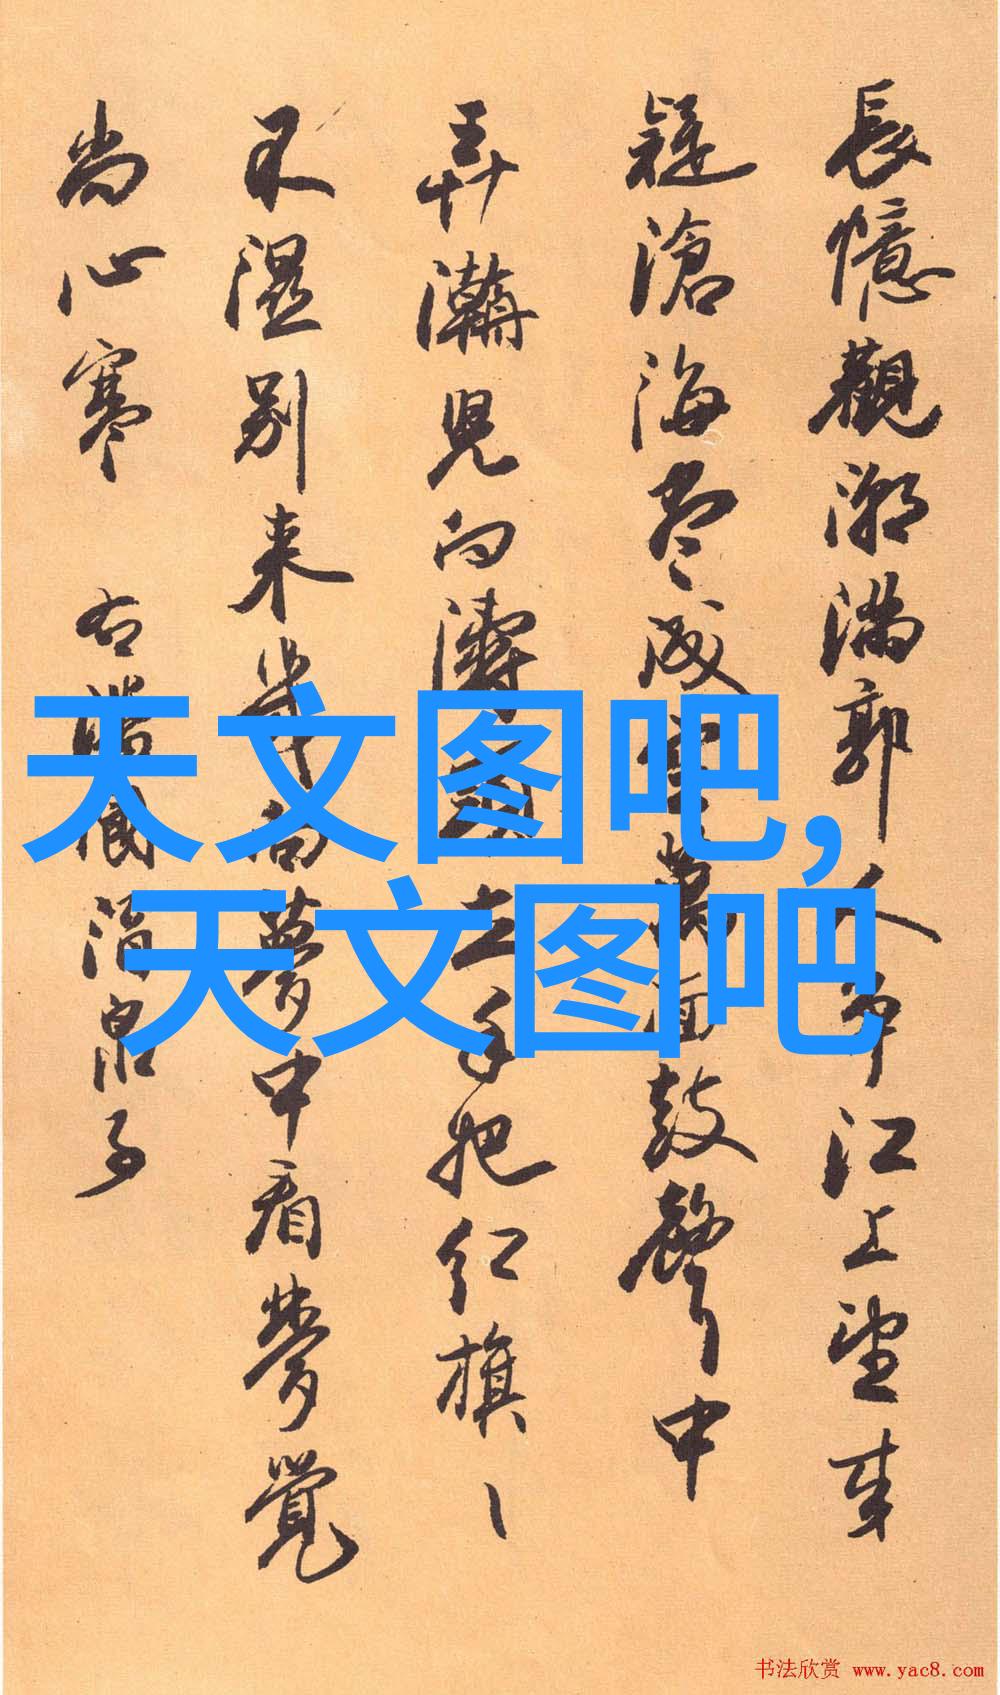 長憶觀潮滿郭人爭江上望来
疑滄海尽成空萬面鼓聲中
弄潮児向濤頭立手把红旗〻
不湿别来幾向夢中看夢覺
尚心寒 右潘閬酒泉子
天文图吧,
天文图吧
书法欣赏 www.yac8.com